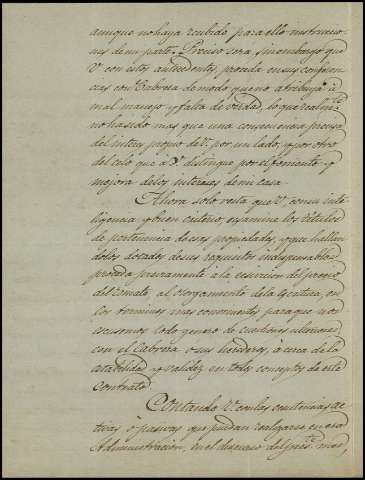 aunque no haya recibido para ello instruccio-
nes de mi parte. Preciso será sin embargo que
V. con estos antecedentes, proceda en sus conferen-
cias con Cabrera de modo que no atribuya á
mal manejo y falta de verdad, lo que realm.te
no ha sido mas que una consecuencia precisa
del interes propio de V. por un lado, y por otro
del celo que á V. distingue por el fomento y
mejora de los intereses de mi casa.
Ahora solo resta que V. con su inte-
ligencia y buen criterio, examine los títulos
de pertenencia de esas propiedades, y que hallan-
dolos dotados de sus requisitos indispensables
proceda previamente á la del precio
del remate, al otorgamiento de la escritura, en
los terminos mas convenientes para que nos
escusemos todo genero de cuestiones ulteriores
con el Cabrera ó sus herederos, á cerca de la
estabilidad y validez en todos conceptos de este
contrato.
Contando V. con las ecsistencias ac-
tivas ó pasivas que puedan realizarse en esa
Administracion, en el discurso del pres.te mes,